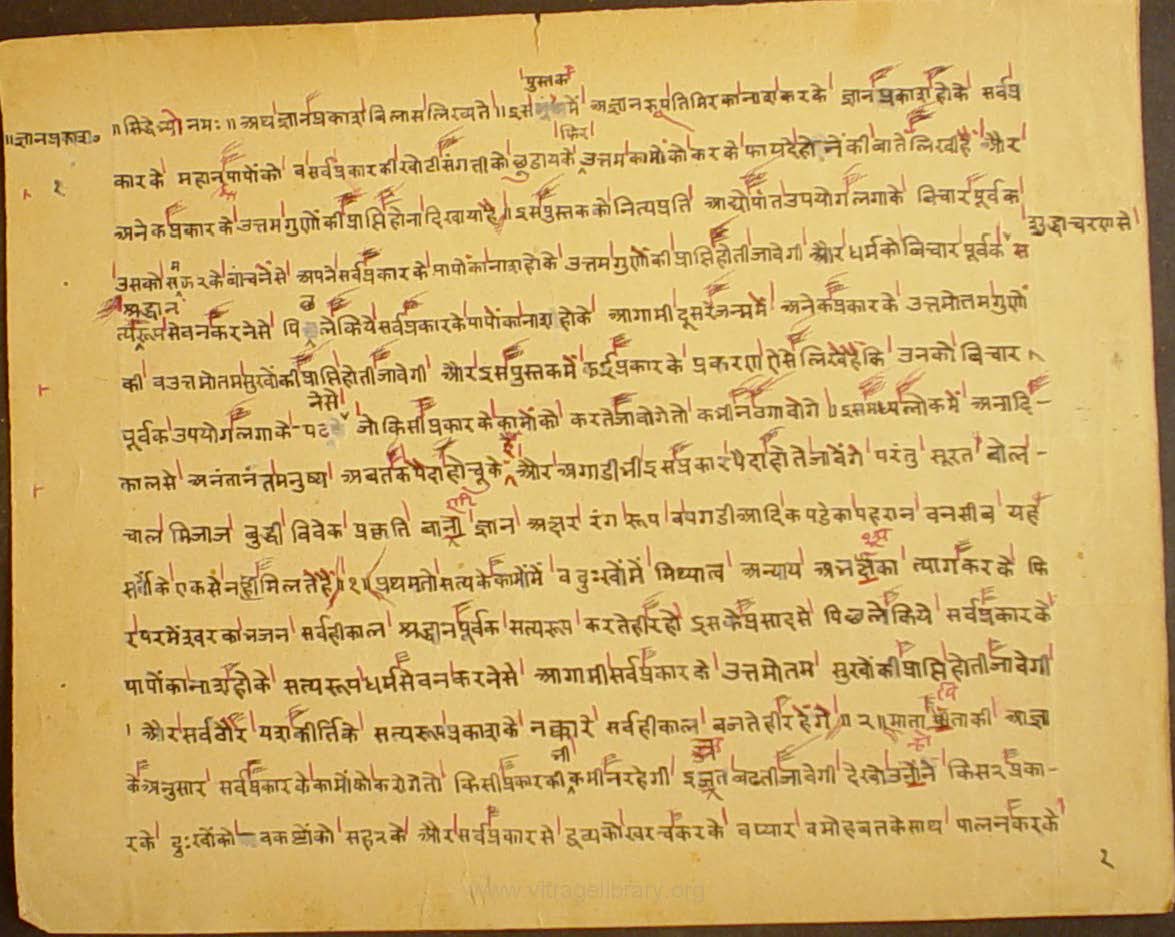 पुस्तक
॥ज्ञानप्रकाश॰ ॥सिद्धेभ्यो नमः॥ अथ ज्ञानप्रकाश विलास लिख्यते॥ इस में अज्ञान रूप तिमिर का नाश करके ज्ञान प्रकाश होके सर्व प्र
फिर
१ कार के महान् पापों को व सर्व प्रकार की खोटी संगती को छुडायके उत्तम कामों को करके फायदे होनें की बातें लिखी हैं और
अनेक प्रकार के उत्तम गुणों की प्राप्ति होना दिखाया है॥ इस पुस्तक को नित्य प्रति आद्योपांत उपयोग लगाके बिचार पूर्वक
शुद्धाचरण से
उसको करके बांचनें से अपने सर्व प्रकार के पापों का नाश होके उत्तम गुणों की प्राप्ति होती जावेगी और धर्म को बिचार पूर्वक स
श्रद्धान छ
त्य रूप सेवन करनेसे पि ले किये सर्व प्रकार के पापों का नाश होके आगामी दूसरे जन्म में अनेक प्रकार के उत्तमोतम गुणों
की व उत्तमोतम सुखों की प्राप्ति होती जावेगी और इस पुस्तक में कई प्रकार के प्रकरण ऐसे लिखे हैं कि उनको बिचार
नेसे
पूर्वक उपयोग लगाके पढ जो किसी प्रकार के कामों को करते जावोगे तो कभी न ठगावोगे॥ इस मध्य लोक में अनादि-
हैं
काल से अनंतानंत मनुष्य अबतक पैदा हो चूके और अगाडी भी इस प्रकार पैदा होते जावेंगे परंतु सूरत बोल-
चाल मिजाज बुद्धी विवेक प्रकृति बानी ज्ञान अक्षर रंग रूप व पगडी आदिक पडे का पहरान व नसीब यह
सर्वों के एकसे नहीं मिलते हैं॥१॥ प्रथम तो सत्य के कामों में व दुःखों में मिथ्यात्व अन्याय अभक्ष का त्याग करके फि
र परमेश्वर का भजन सर्व ही काल श्रद्धान पूर्वक सत्यरूप करते ही रहो इसके प्रसाद से पिछले किये सर्व प्रकार के
पापों का नाश होके सत्य रूप धर्म सेवन करनेसे आगामी सर्व प्रकार के उत्तमोतम सुखों की प्राप्ति होती जावेगी
। और सर्व ठौर यश कीर्ति के सत्य रूप प्रकाश के नक्कारे सर्व ही काल बजते ही रहेंगे॥२॥ माता पीता की आज्ञा
भी ज्ज
के अनुसार सर्व प्रकार के कामों को करोगे तो किसी प्रकार की कमी न रहेगी इज्जत बढती जावेगी देखो उनोंने किस२ प्रका-
र के दुःखों को व कष्टों को सह२ के और सर्व प्रकार से द्रव्य को खरच करके व प्यार व मोहबत के साथ पालन करके
२
www.vitragelibrary.org